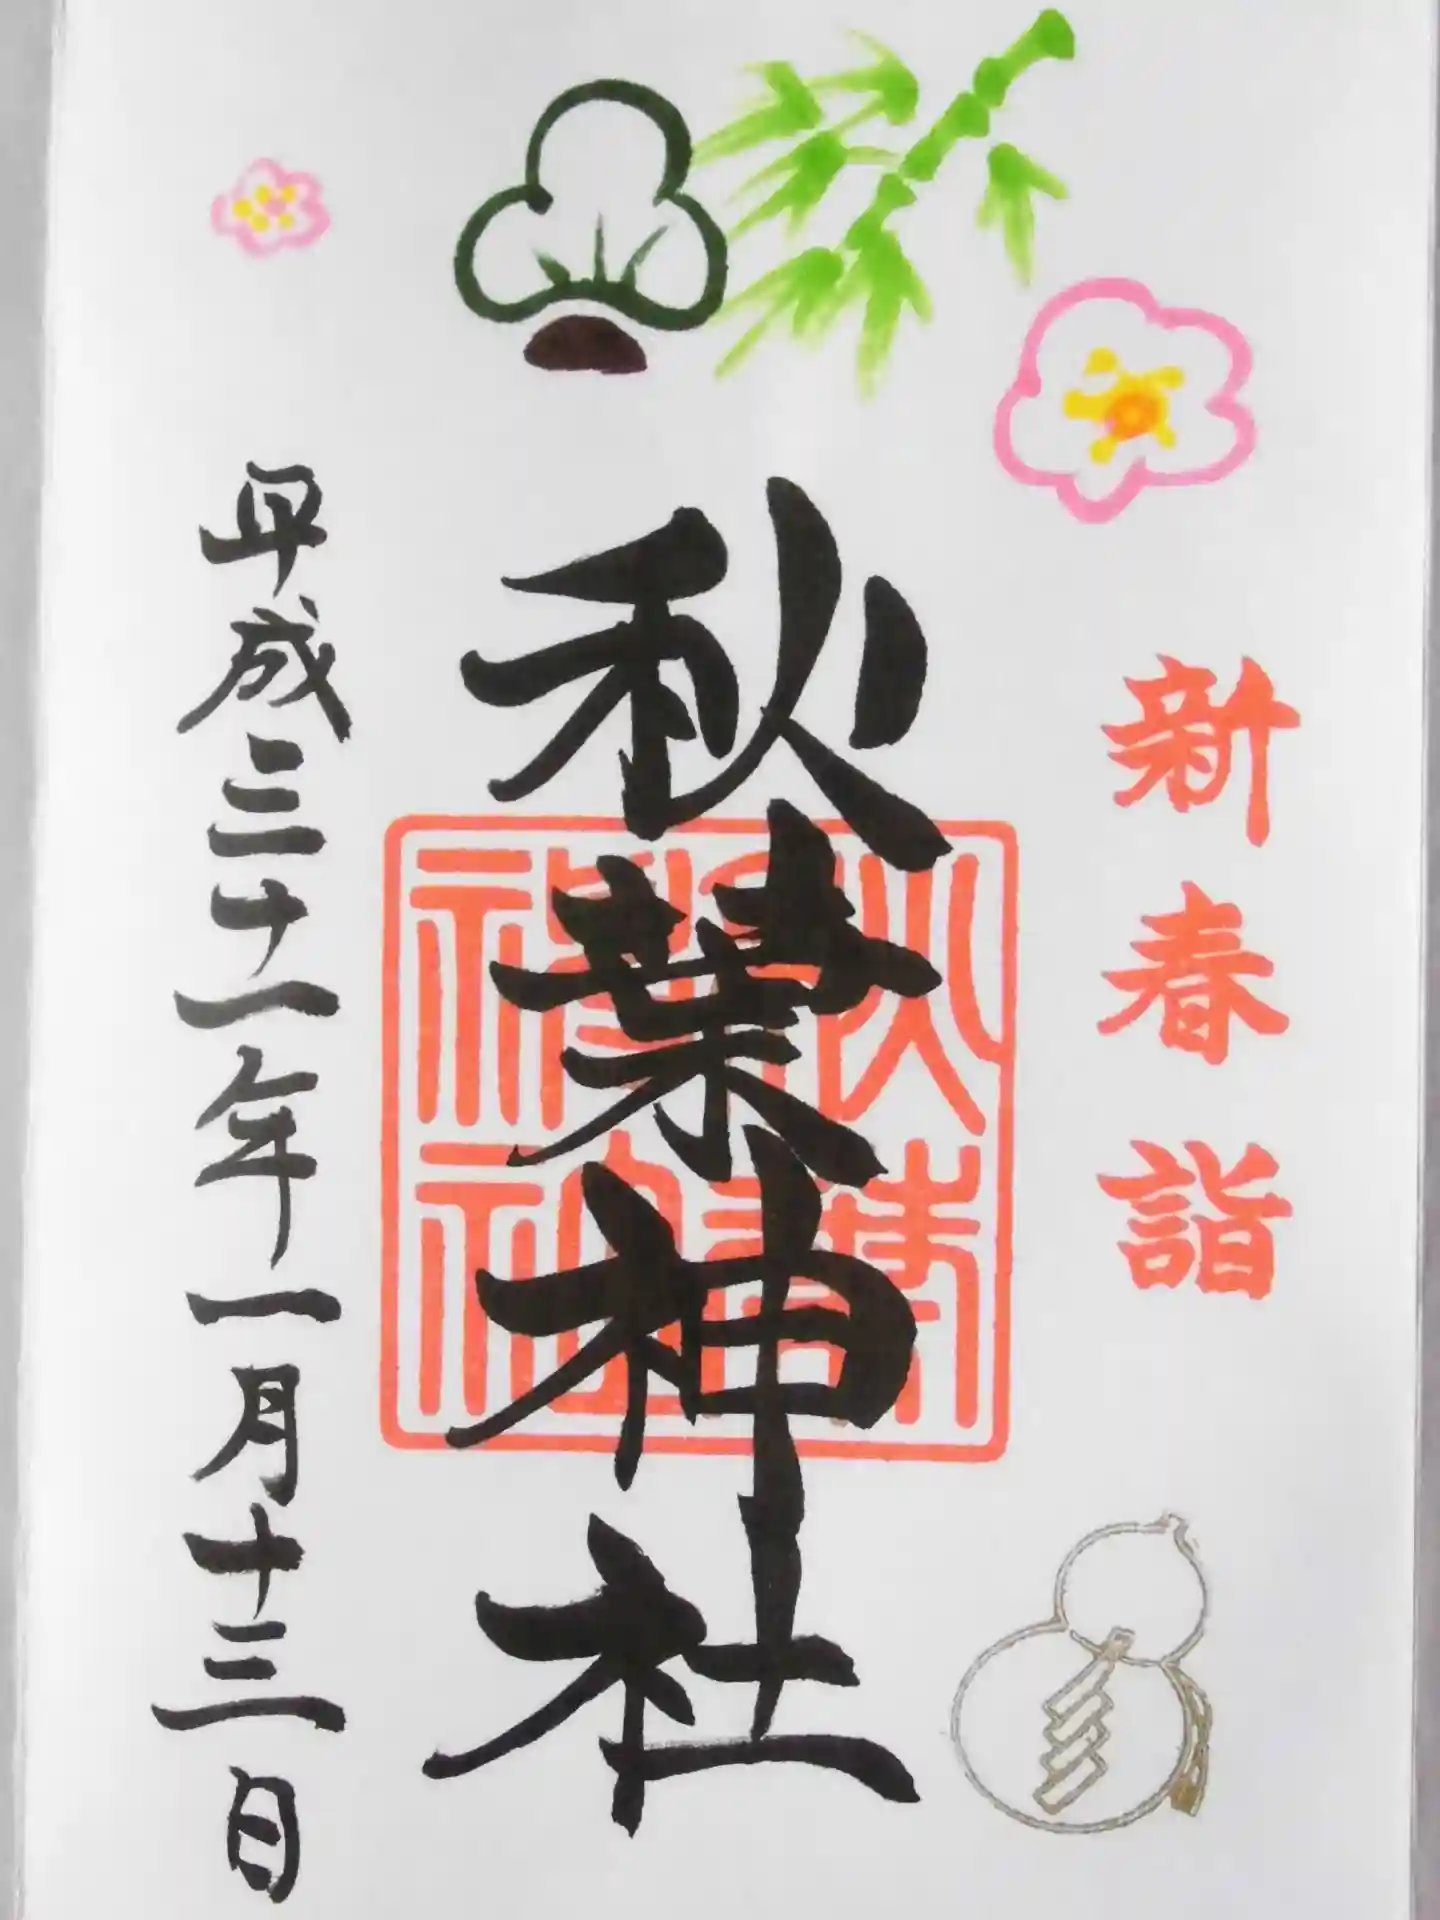 新春詣
秋葉神社
平成三十一年一月十三日